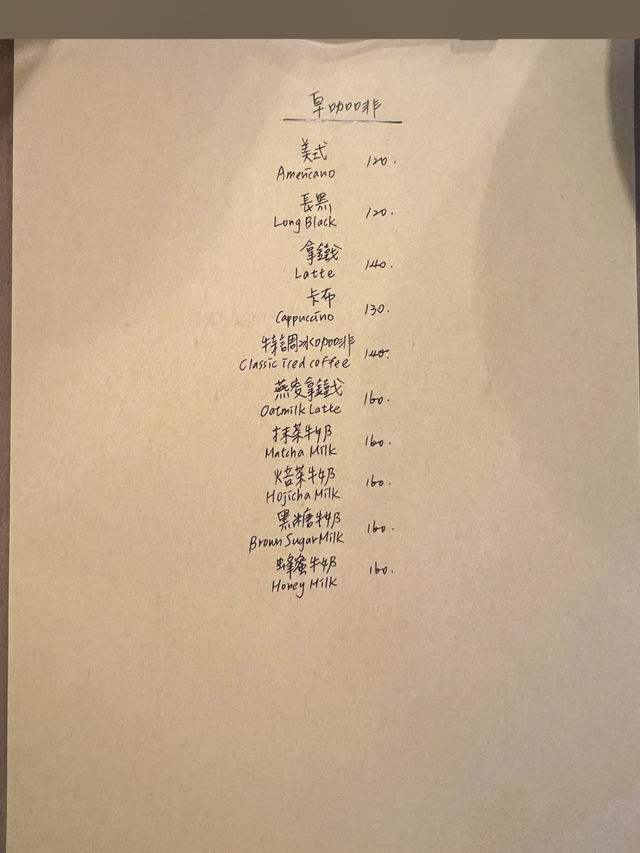 早咖啡
美式 120.
Americano
長黑 120.
Long Black
拿鐵 140.
Latte
卡布 130.
Cappuccino
特調冰咖啡 140.
Classic iced coffee
燕麥拿鐵 160.
Oatmilk Latte
抹茶牛奶 160.
Matcha Milk
焙茶牛奶 160.
Hojicha Milk
黑糖牛奶 160.
Brown Sugar Milk
蜂蜜牛奶 160.
Honey Milk